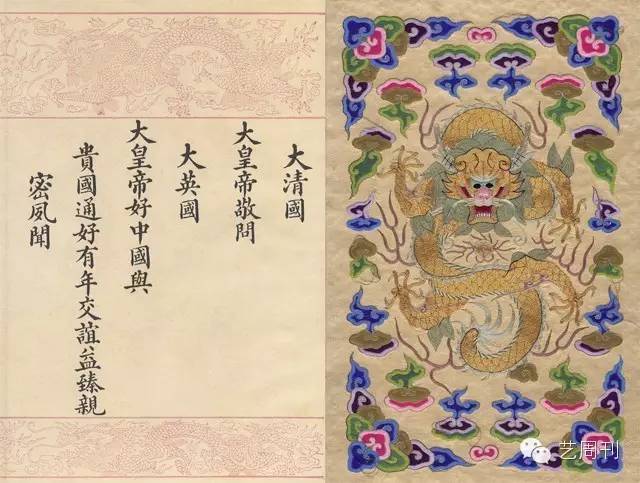 大清國
大皇帝敬問
大英國
大皇帝好中國與
貴國通好有年交誼益臻親
密夙聞
艺周刊